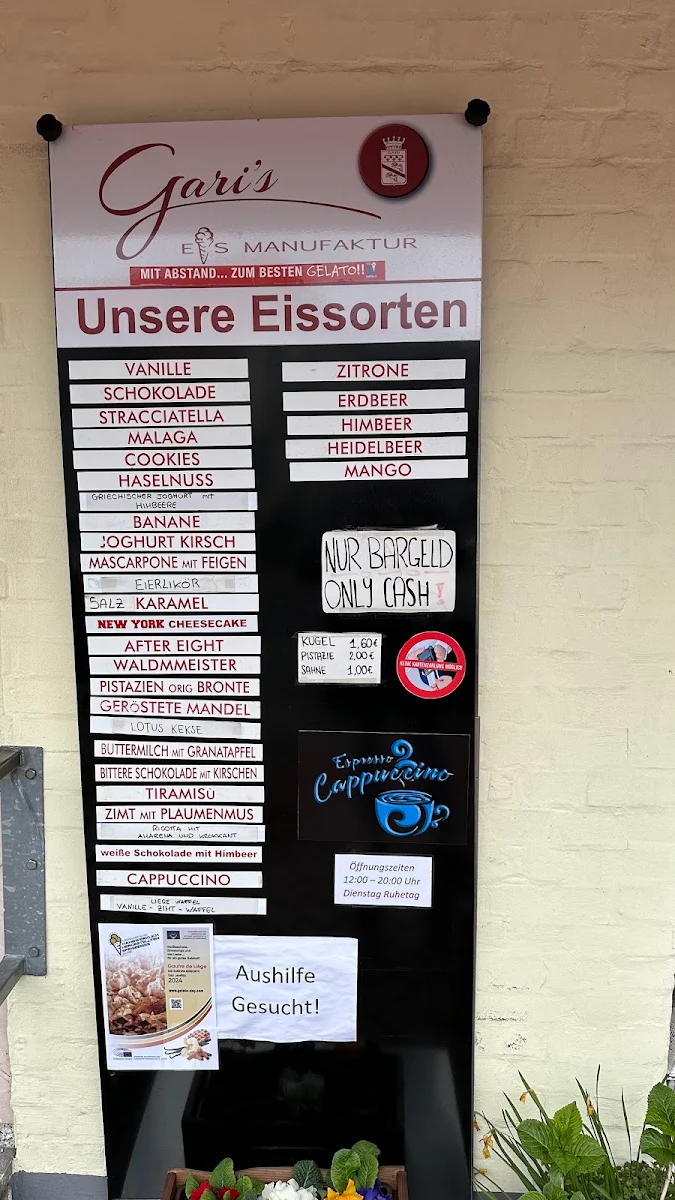 Gari's
EIS MANUFAKTUR
MIT ABSTAND... ZUM BESTEN GELATO!!
Unsere Eissorten
VANILLE
SCHOKOLADE
STRACCIATELLA
MALAGA
COOKIES
HASELNUSS
GRIECHISCHER JOGHURT mit
HIMBEERE
BANANE
JOGHURT KIRSCH
MASCARPONE MIT FEIGEN
EIERLIKÖR
SALZ KARAMEL
NEW YORK CHEESECAKE
AFTER EIGHT
WALDMMEISTER
PISTAZIEN ORIG BRONTE
GERÖSTETE MANDEL
LOTUS KEKSE
BUTTERMILCH MIT GRANATAPFEL
BITTERE SCHOKOLADE MIT KIRSCHEN
TIRAMISÙ
ZIMT MIT PFLAUMENMUS
RICOTTA MIT
AMARENA UND KROKKANT
weiße Schokolade mit Himbeer
CAPPUCCINO
LIEGE WAFFEL
VANILLE - ZIMT - WAFFEL
ZITRONE
ERDBEER
HIMBEER
HEIDELBEER
MANGO
NUR BARGELD
ONLY CASH!
KUGEL 1,60€
PISTAZIE 2,00€
SAHNE 1,00€
KEINE KARTENZAHLUNG MÖGLICH
Espresso
Cappuccino
Öffnungszeiten
12:00 – 20:00 Uhr
Dienstag Ruhetag
Gaufre de Liège
2024
www.gelato-day.com
Aushilfe
Gesucht!